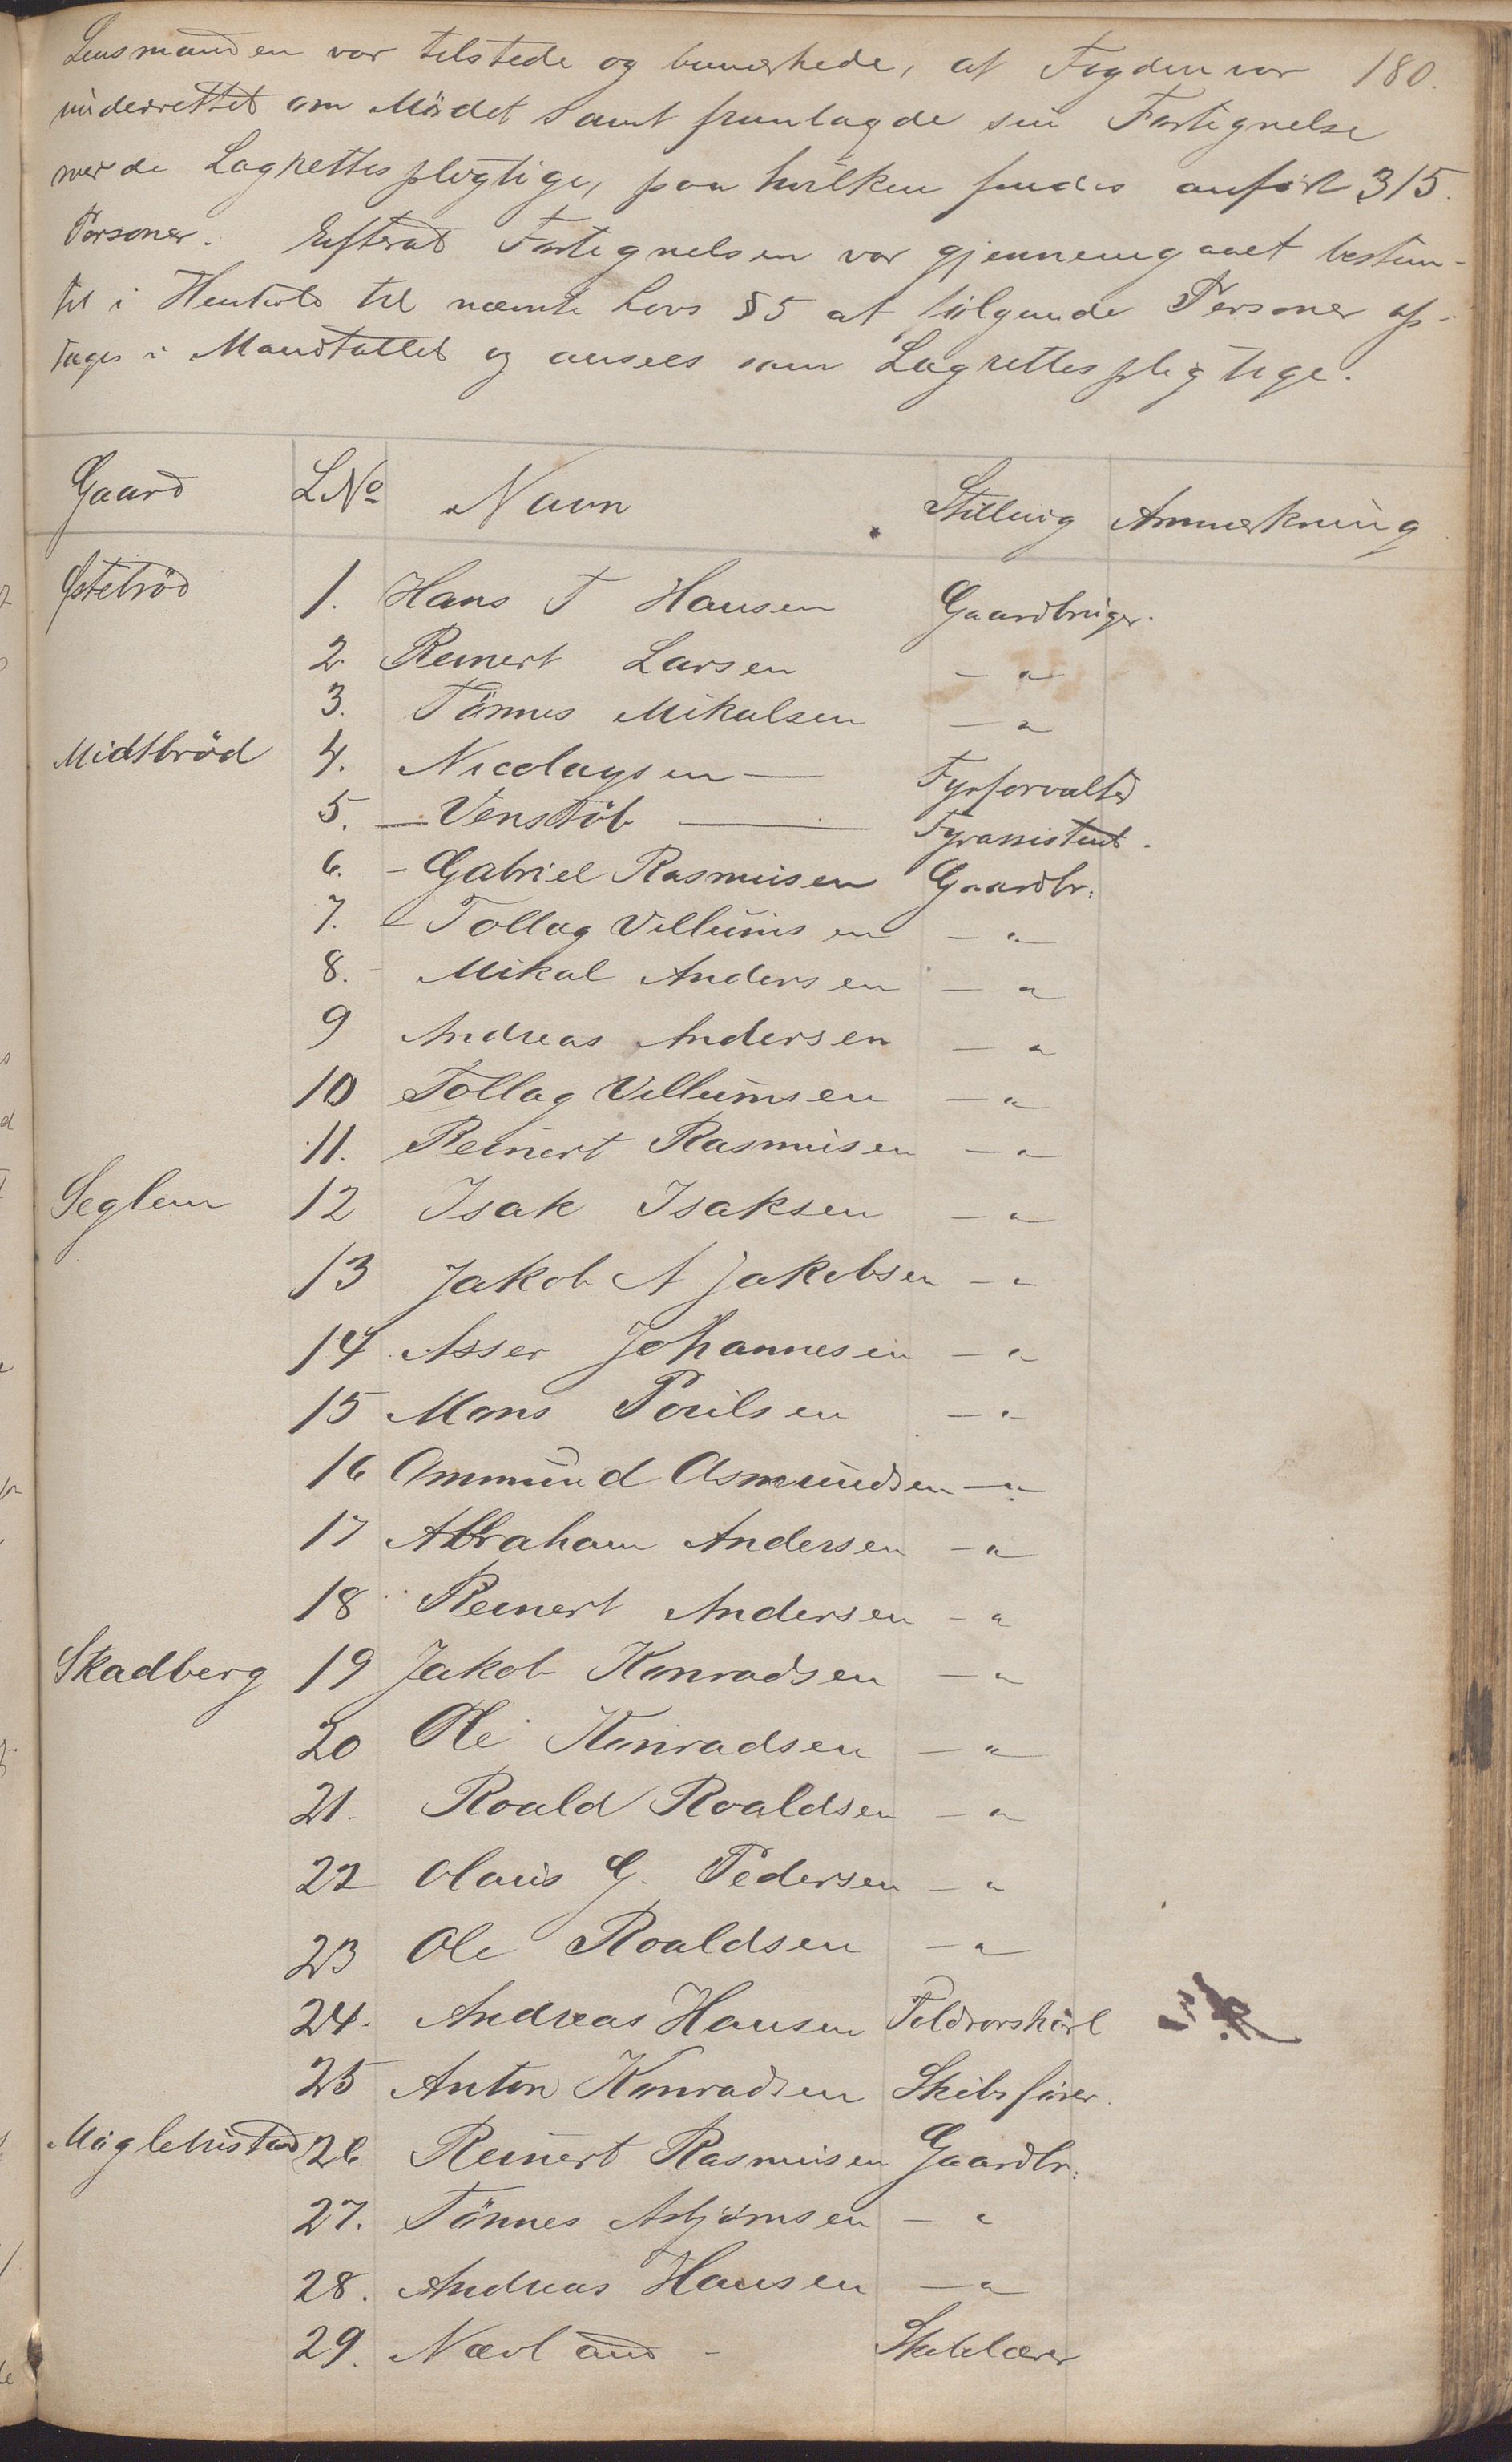 Lensmanden var tilstede og bemærkede, at Fogden var 180.
underrettet om Mödet samt fremlagde sin Fortegnelse
over de Lagrettespligtige, paa hvilken findes anført 315
Personer. Efterat Fortegnelsen var gjennemgaaet bestem-
tes i Henhold til nævnte Lovs § 5 at følgende Personer op-
tages i Mandtallet og ansees som Lagrettespligtige.
Gaard LNo Navn Stilling Anmerkning
Østebröd 1. Hans T Hansen Gaardbruger.
2 Reinert Larsen — "
3. Tönnes Mikalsen — "
Midtbröd 4. Nicolaysen — Fyrforvalter
5. — Venstöb — Fyrassistent.
6. - Gabriel Rasmusen Gaardbr:
7. - Tollag Villumsen — "
8. - Mikal Andersen — "
9 Andreas Andersen — "
10 Tollag Villumsen — "
11. Reinert Rasmusen — "
Seglem 12 Isak Isaksen — "
13 Jakob A Jakobsen — "
14 Asser Johannesen — "
15 Mons Poulsen — "
16 Ommund Osmundsen — "
17 Abraham Andersen — "
18 Reinert Andersen — "
Skadberg 19 Jakob Konradsen — "
20 Ole Konradsen — "
21. Roald Roaldsen — "
22 Olaus G. Pedersen — "
23 Ole Roaldsen — "
24. Andreas Hansen Toldrorskarl
25 Anton Konradsen Skibsförer.
Möglebustad 26. Reinert Rasmusen Gaardbr:
27. Tönnes Asbjörnsen — "
28. Andreas Hansen — "
29. Nævland - Skolelærer